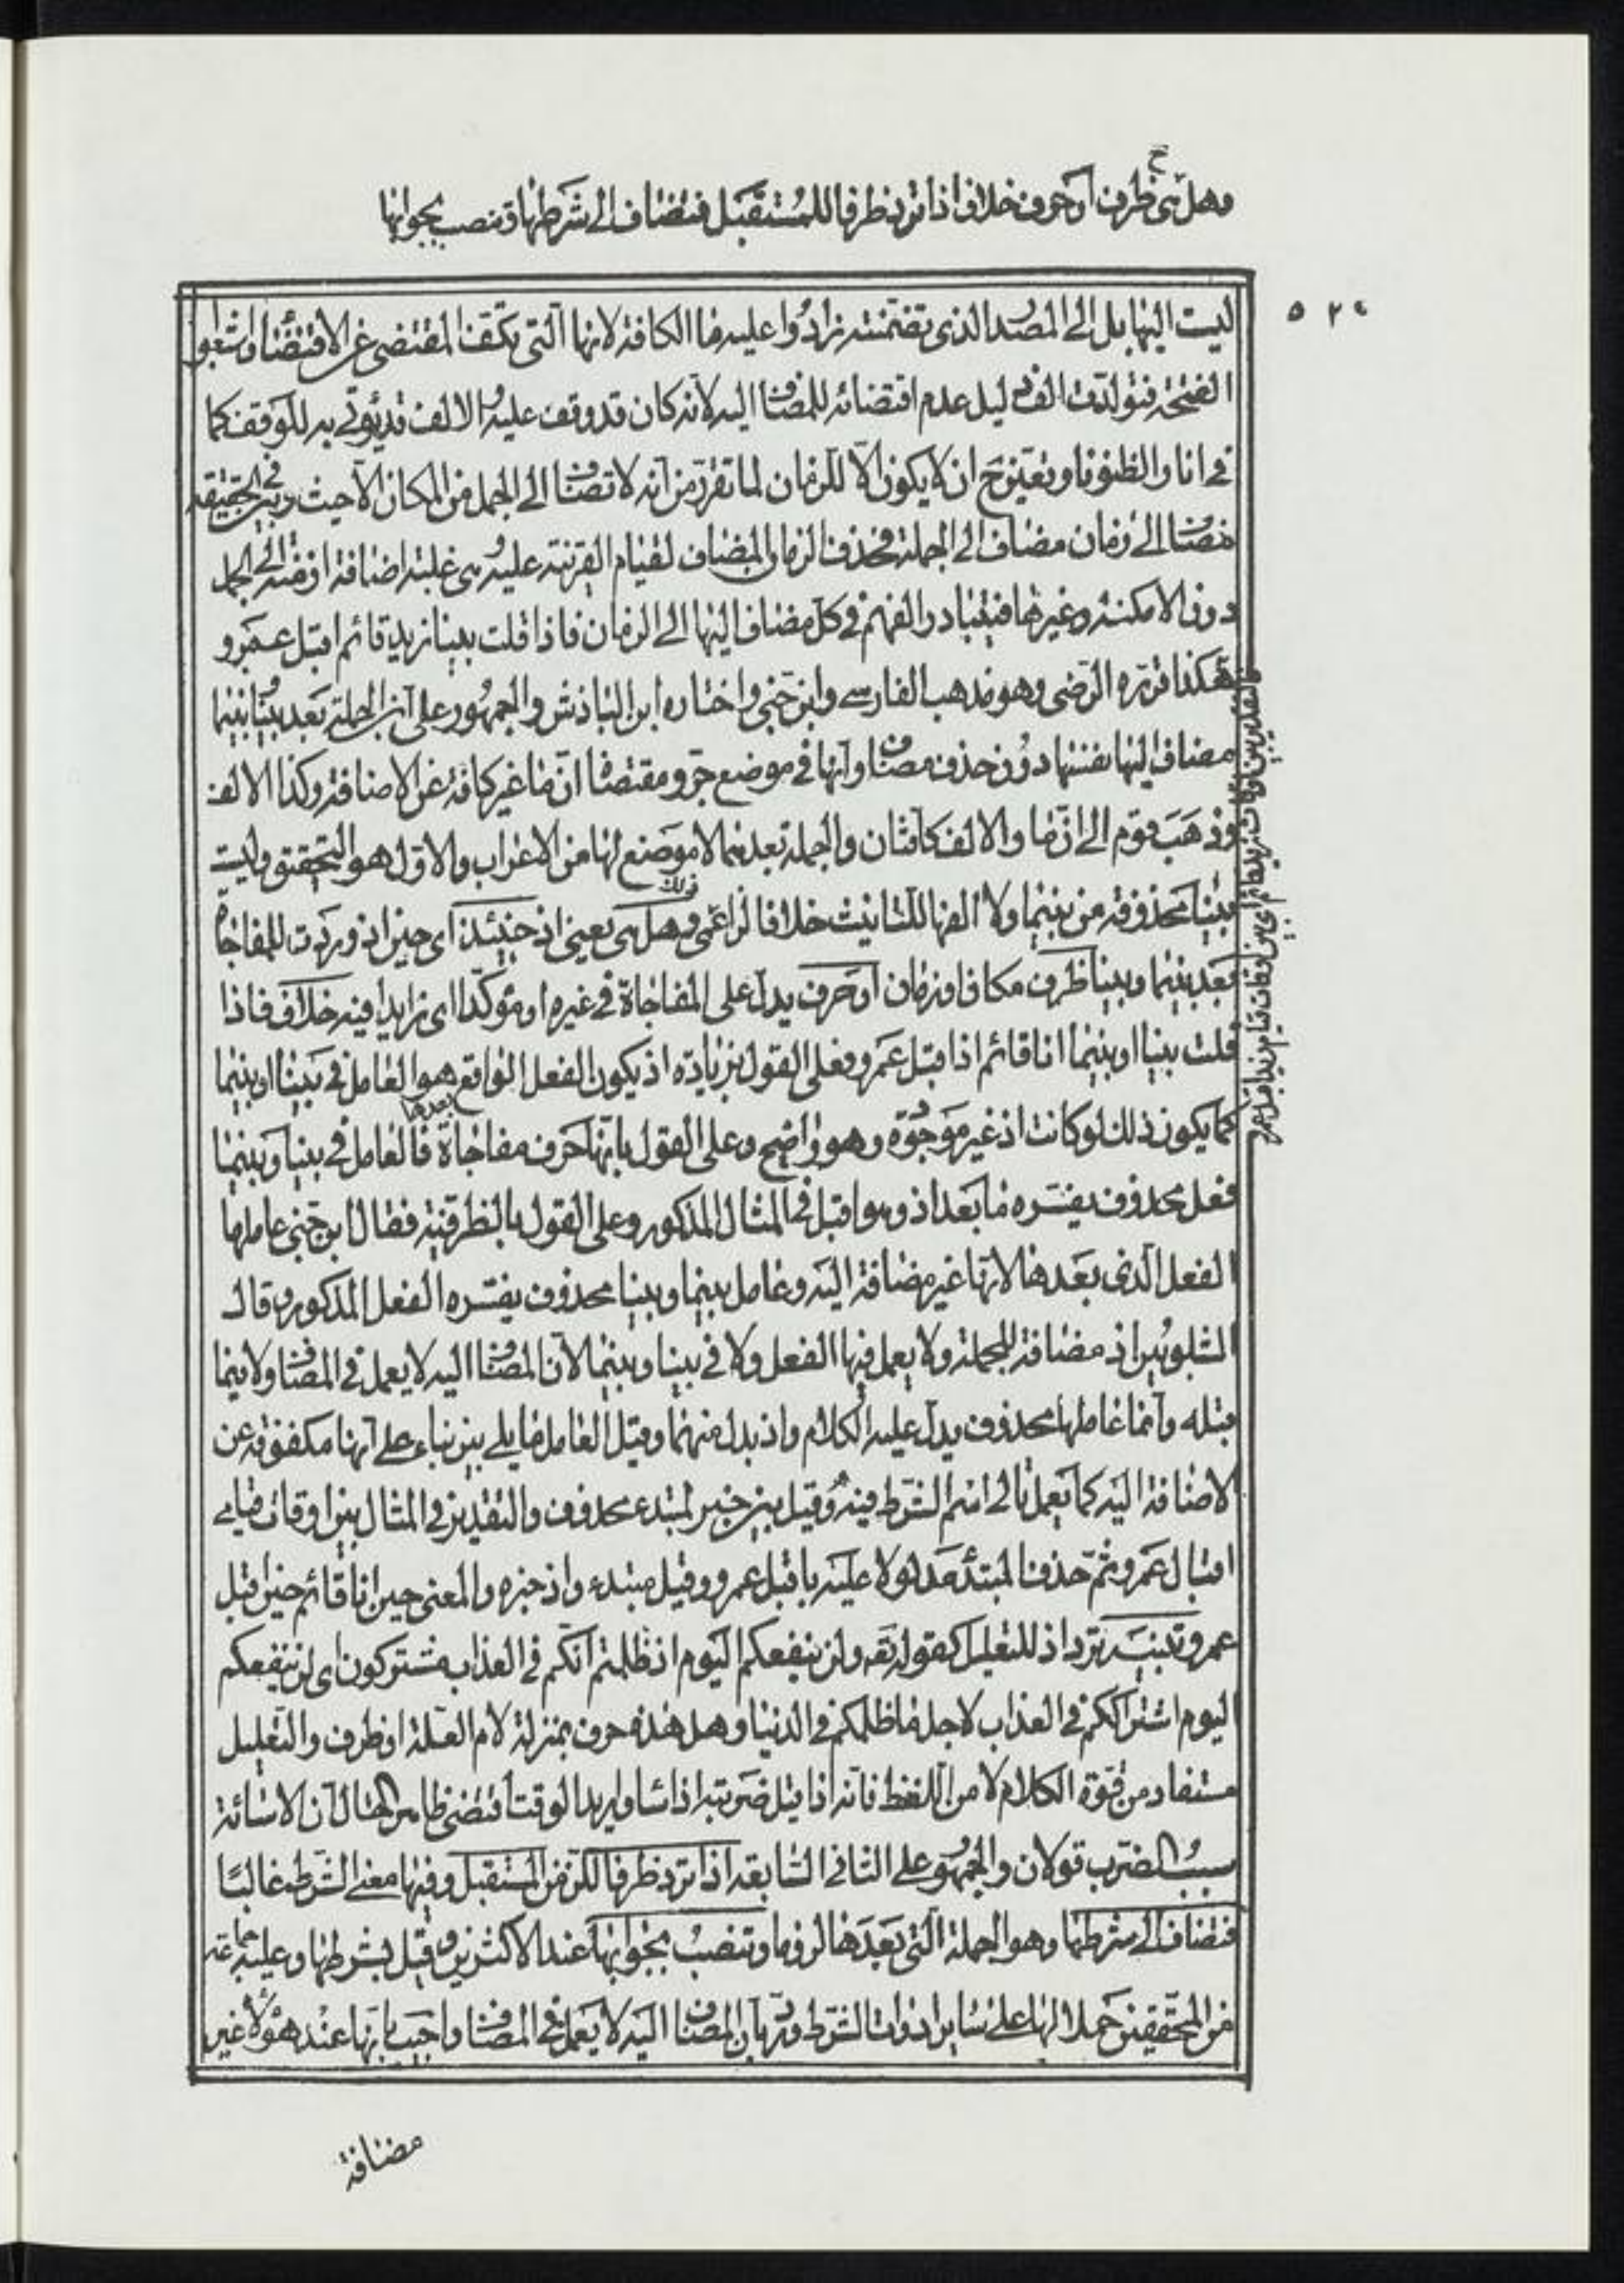 وهل هى ظرف او حرف خلاف اذا ترد ظرفا للمستقبل فتضاف الى شرطها وتنصب بجوابها
٥٢٤
ليست اليها بل الى المصدر الذى تضمنته زادوا عليه ما الكافة لانها التى تكف المقتضى عن الاقتضاء واشبعوا
الفتحة فتولدت الف دليل عدم اقتضائه للمضاف اليه لانه كان قد وقف عليه والالف قد يؤتى به للوقف كما
فى انا والظنونا وتعين ح ان لا يكون الا للزمان لما تقرر من انه لا تضاف الى الجمل من المكان الا حيث وبين فى الحقيقة
مضاف الى زمان مضاف الى الجملة فحذف الزمان المضاف لقيام القرينة عليه وهى غلبة اضافة ازمنة الى الجمل
دون الامكنة وغيرها فيتبادر الفهم فى كل مضاف اليها الى الزمان فاذا قلت بينا زيد قائم اقبل عمرو
هكذا قرره الرضى وهو مذهب الفارسى وابن جنى واختاره ابن الباذش والجمهور على ان الجملة بعد بينا وبينما
مضاف اليها نفسها دون حذف مضاف وانها فى موضع جر ومقتضاه ان ما غير كافة عن الاضافة وكذا الالف
وذهب قوم الى ان ما والالف كافتان والجملة بعدهما لا موضع لها من الاعراب والاول هو التحقيق وليست
بينا محذوفة من بينما ولا الفها للتانيث خلافا لزاعمى ذلك وهل هى يعنى اذ حينئذ اى حين اذ وردت للمفاجاة
بعد بينما وبينا ظرف مكان او زمان او حرف يدل على المفاجاة فى غيره او مؤكدا اى زايدا فيه خلاف فاذا
قلت بينا او بينما انا قائم اذ اقبل عمرو فعلى القول بزيادة اذ يكون الفعل الواقع بعدها هو العامل فى بينا او بينما
كما يكون ذلك لو كانت اذ غير موجودة وهو واضح وعلى القول بانها حرف مفاجاة فالعامل فى بينا وبينما
فعل محذوف يفسره ما بعد اذ وهو اقبل فى المثال المذكور وعلى القول بالظرفية فقال ابن جنى عاملها
الفعل الذى بعدها لانها غير مضافة اليه وعامل بينما وبينا محذوف يفسره الفعل المذكور وقال
الشلوبين اذ مضافة للجملة ولا يعمل فيها الفعل ولا فى بينا وبينما لان المضاف اليه لا يعمل فى المضاف ولا فيما
قبله وانما عاملها محذوف يدل عليه الكلام واذ بدل منهما وقيل العامل ما يلى بين بناء على انها مكفوفة عن
الاضافة اليه كما يعمل تالى اسم الشرط فيه وقيل بين خبر لمبتدء محذوف والتقدير فى المثال بين اوقات قيامى
اقبال عمرو ثم حذف المبتدأ مدلولا عليه باقبل عمرو وقيل مبتدء واذ خبره والمعنى حين انا قائم حين اقبل
عمرو تنبيه ترد اذ للتعليل كقوله تعه ولن ينفعكم اليوم اذ ظلمتم انكم فى العذاب مشتركون اى لن ينفعكم
اليوم اشتراككم فى العذاب لاجل ما ظلمكم فى الدنيا وهل هذه حرف بمنزلة لام العلة او ظرف والتعليل
مستفاد من قوة الكلام لا من اللفظ فانه اذا قيل ضربته اذ اساء واريد الوقت اقتضى ظاهر الحال ان الاسائة
سبب الضرب قولان والجمهور على الثانى السابعة اذا ترد ظرفا للزمن المستقبل وفيها معنى الشرط غالبا
فتضاف الى شرطها وهو الجملة التى بعدها لزوما وتنصب بجوابها عند الاكثرين وقيل بشرطها وعليه جماعة
من المحققين حملا لها على سائر ادوات الشرط ورد بان المضاف اليه لا يعمل فى المضاف واجيب بانها عند هؤلاء غير
فالتقدير بين اوقات زيد قائم اى بين اوقات قيام زيد اقبل عمرو
مضافة